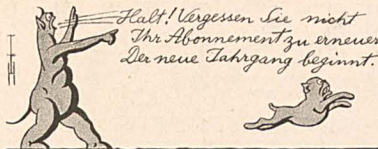 Halt! Vergessen Sie nicht
Ihr Abonnement zu erneuern
Der neue Jahrgang beginnt.